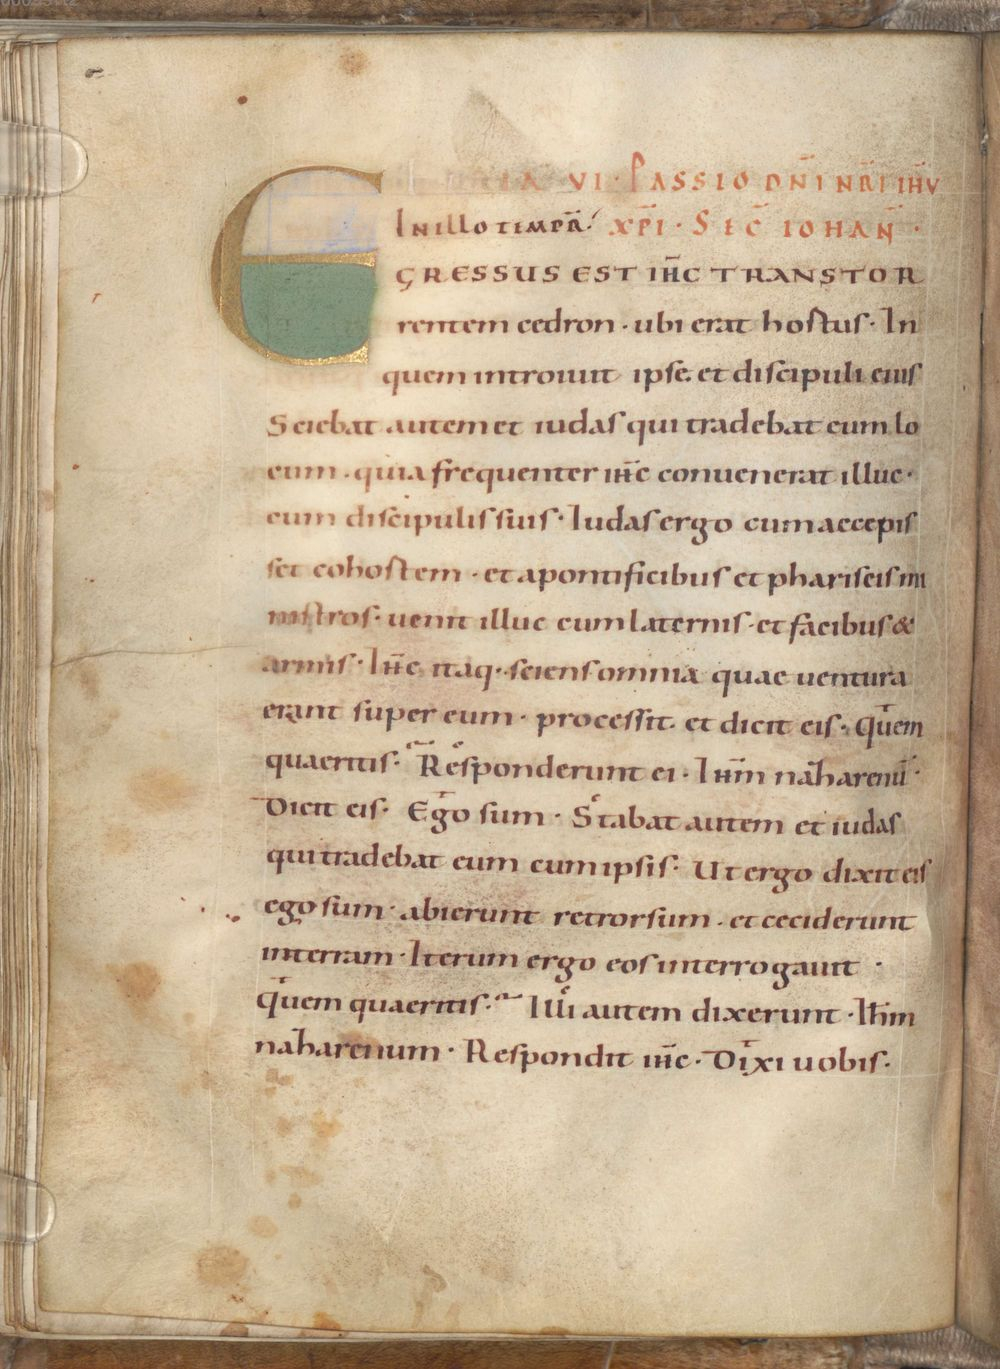 IA VI · PASSIO DN̄I NR̄I IH̄V
IN ILLO TEMPR̄ XP̄I · SEC̄ IOHAN̄ ·
EGRESSUS EST IH̄C TRANS TOR
rentem cedron · ubi erat hostus · In
quem introiuit ipse · et discipuli eius
Sciebat autem et iudas qui tradebat eum lo
cum · quia frequenter ih̄c conuenerat illuc ·
cum discipulis suis · Iudas ergo cum accepis
set cohostem · et a pontificibus et phariseis mi
nistros · uenit illuc cum laternis · et facibus &
armis · Ih̄c itaq · sciens omnia quae uentura
erant super eum · processit · et dicit eis · Quem
quaeritis · Responderunt ei · Ih̄m naharenū ·
Dicit eis · Ego sum · Stabat autem et iudas
qui tradebat eum cum ipsis · Ut ergo dixit eis
ego sum · abierunt retrorsum · et ceciderunt
in terram · Iterum ergo eos interrogauit ·
quem quaeritis · Illi autem dixerunt · Ih̄m
naharenum · Respondit ih̄c · Dixi uobis ·